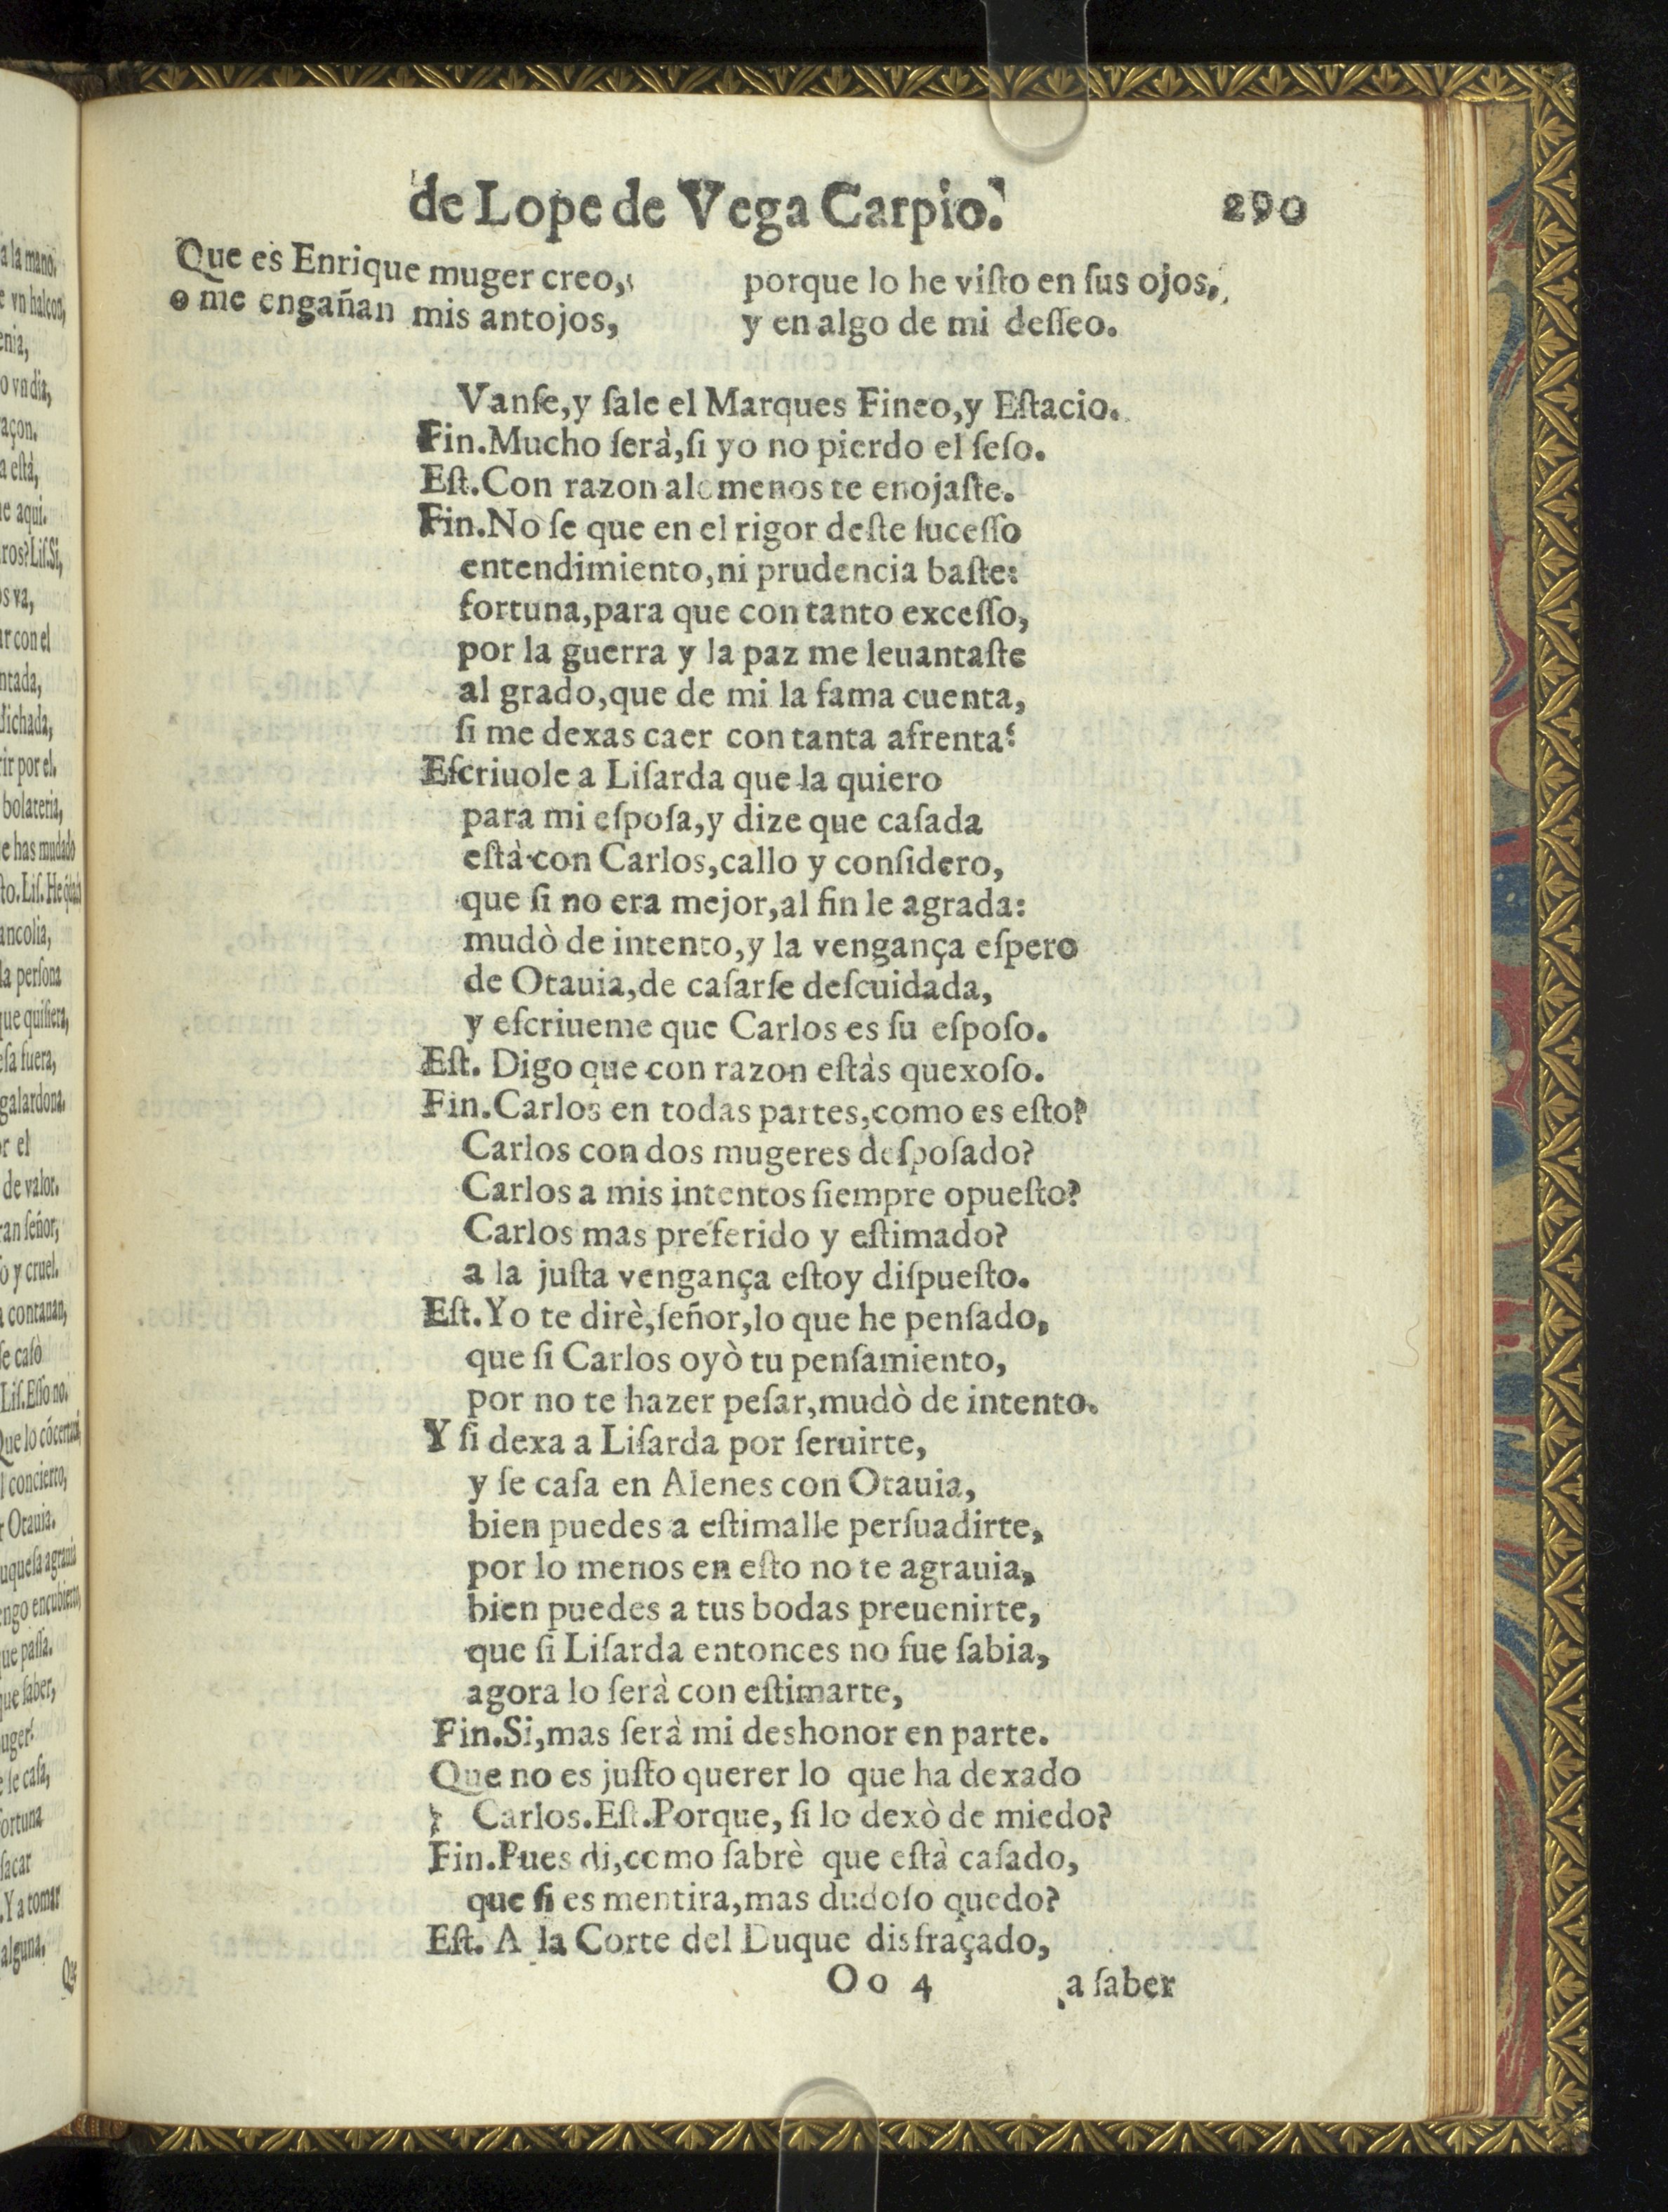 de Lope de Vega Carpio. 290
Que es Enrique muger creo,
o me engañan mis antojos,
porque lo he viſto en ſus ojos,
y en algo de mi deſſeo.
Vanſe, y ſale el Marques Fineo, y Eſtacio.
Fin. Mucho ſerà, ſi yo no pierdo el ſeſo.
Eſt. Con razon alomenos te enojaſte.
Fin. No ſe que en el rigor deſte ſuceſſo
entendimiento, ni prudencia baſte:
fortuna, para que con tanto exceſſo,
por la guerra y la paz me leuantaſte
al grado, que de mi la fama cuenta,
ſi me dexas caer con tanta afrenta?
Eſcriuole a Liſarda que la quiero
para mi eſpoſa, y dize que caſada
eſtà con Carlos, callo y conſidero,
que ſi no era mejor, al fin le agrada:
mudò de intento, y la vengança eſpero
de Otauia, de caſarſe deſcuidada,
y eſcriueme que Carlos es ſu eſpoſo.
Eſt. Digo que con razon eſtàs quexoſo.
Fin. Carlos en todas partes, como es eſto?
Carlos con dos mugeres deſpoſado?
Carlos a mis intentos ſiempre opueſto?
Carlos mas preferido y eſtimado?
a la juſta vengança eſtoy diſpueſto.
Eſt. Yo te dirè, ſeñor, lo que he penſado,
que ſi Carlos oyò tu penſamiento,
por no te hazer peſar, mudò de intento.
Y ſi dexa a Liſarda por ſeruirte,
y ſe caſa en Alenes con Otauia,
bien puedes a eſtimalle perſuadirte,
por lo menos en eſto no te agrauia,
bien puedes a tus bodas preuenirte,
que ſi Liſarda entonces no fue ſabia,
agora lo ſerà con eſtimarte,
Fin. Si, mas ſerà mi deshonor en parte.
Que no es juſto querer lo que ha dexado
Carlos. Eſt. Porque, ſi lo dexò de miedo?
Fin. Pues di, como ſabrè que eſtà caſado,
que ſi es mentira, mas dudoſo quedo?
Eſt. A la Corte del Duque disfraçado,
Oo 4 a ſaber